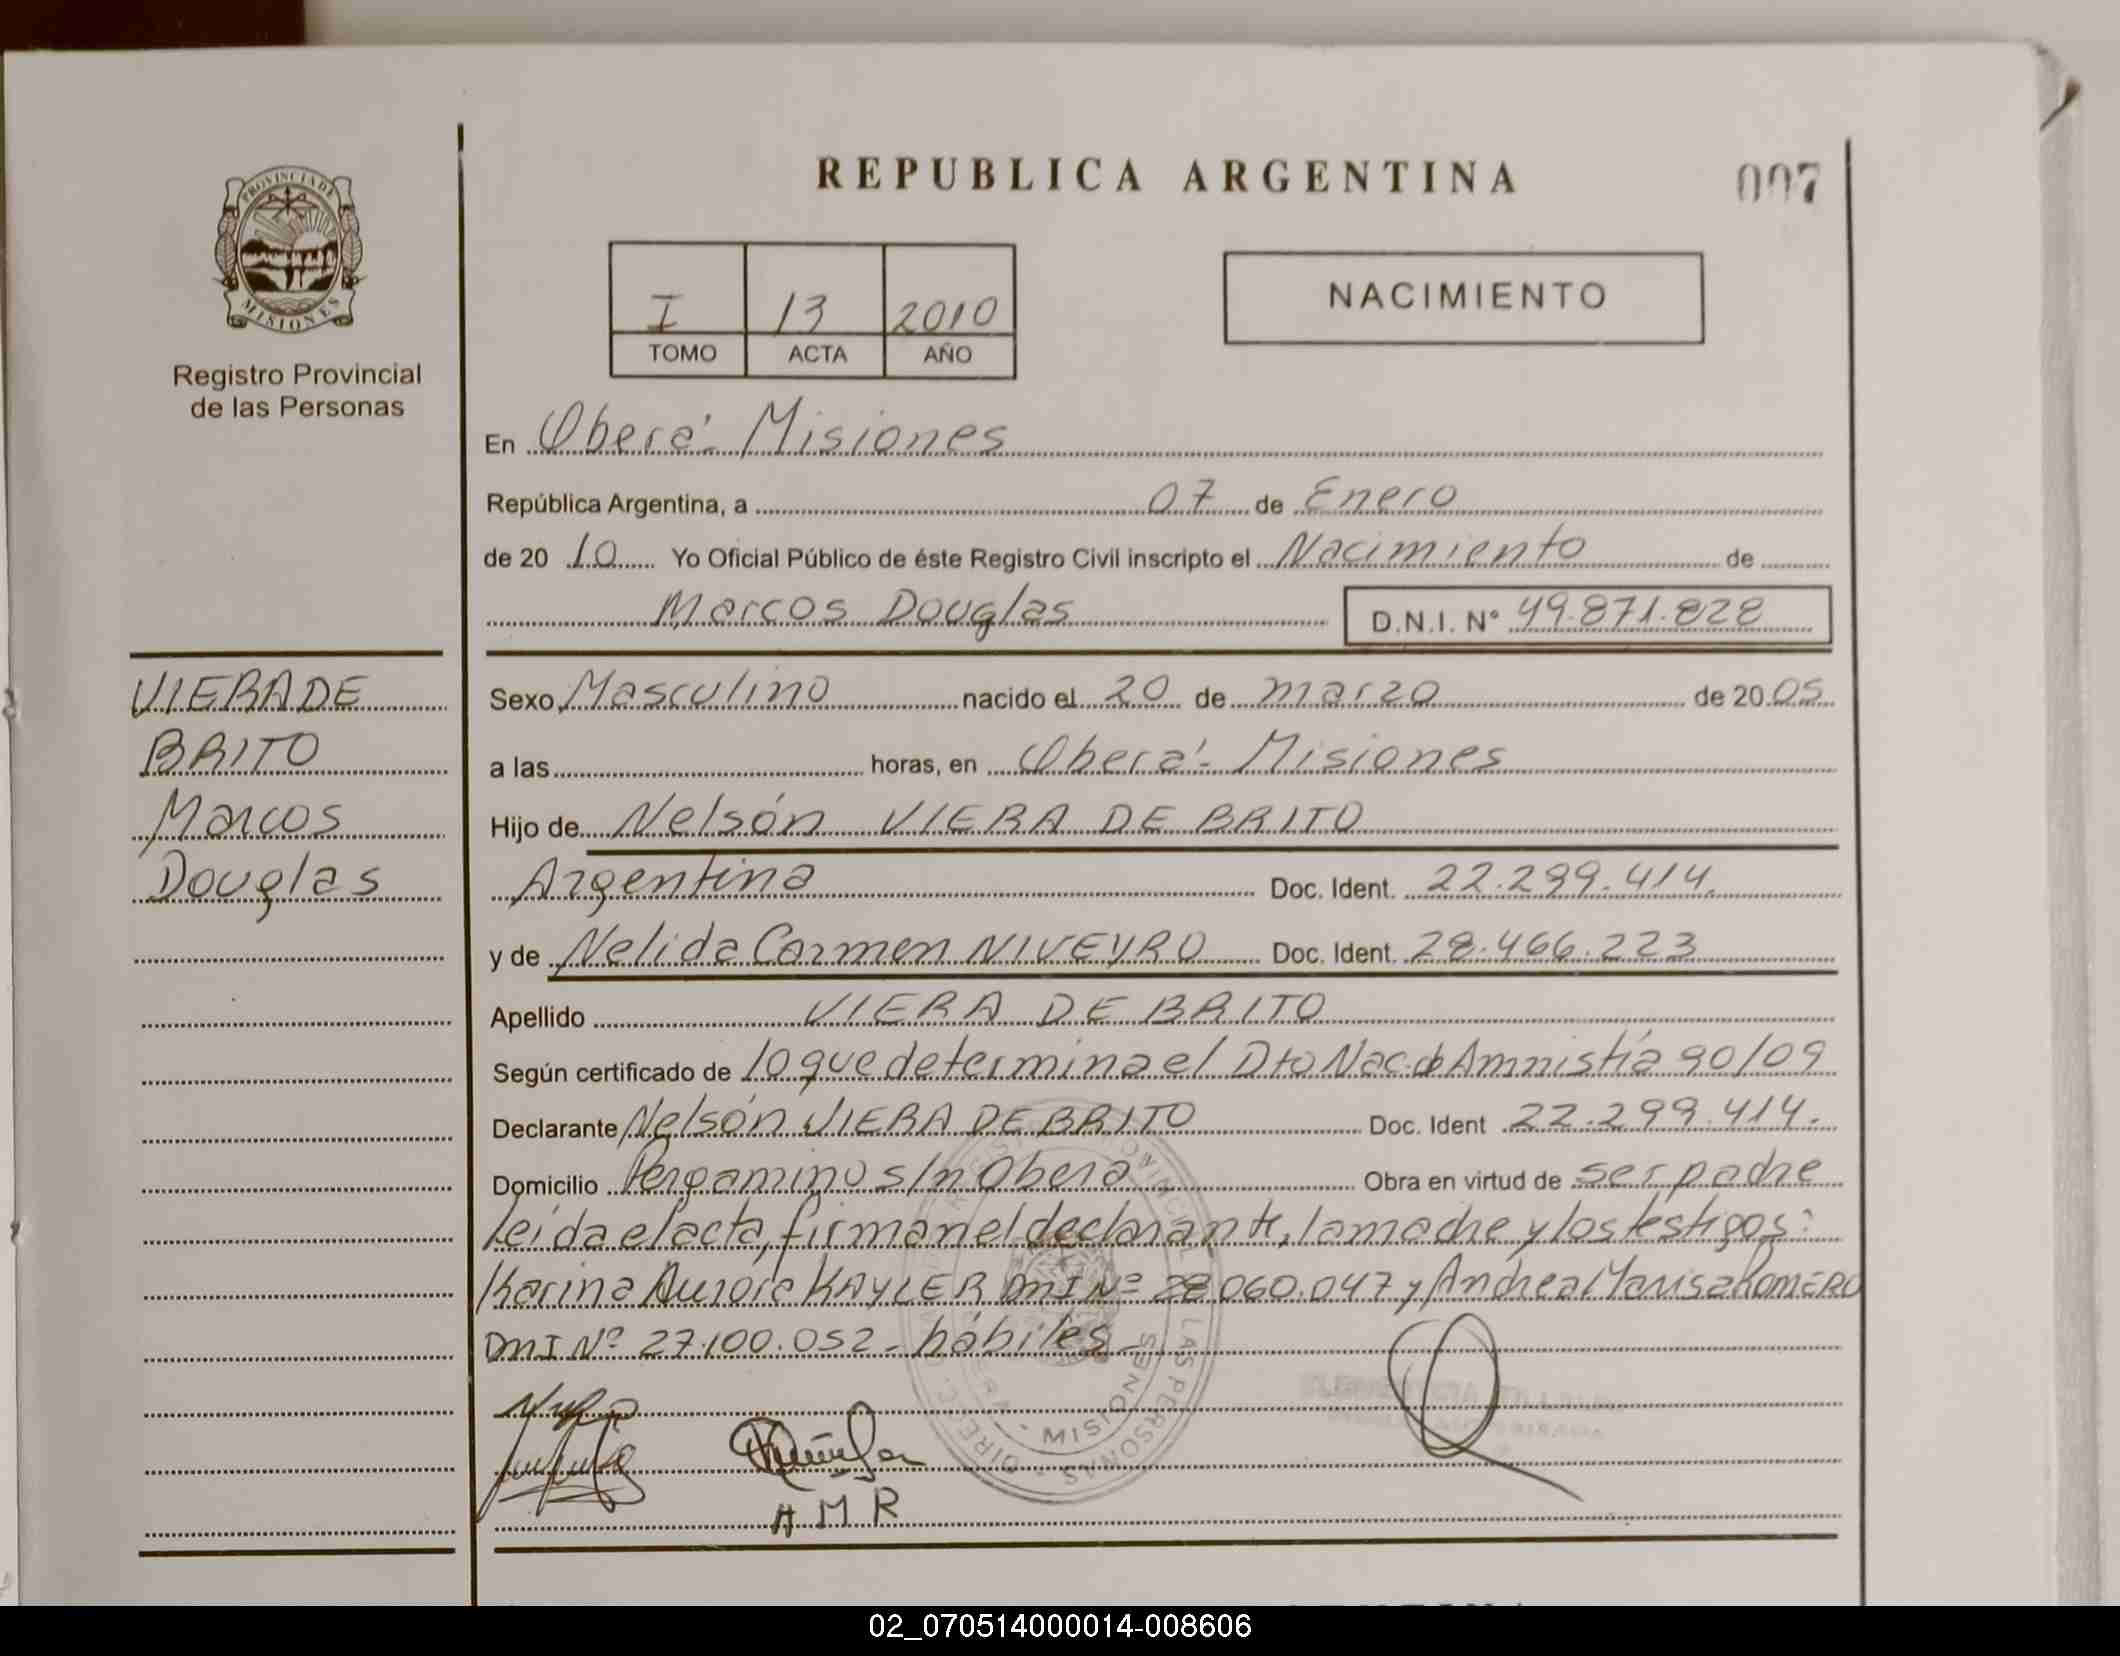 REPUBLICA ARGENTINA
007
PROVINCIA DE
MISIONES
Registro Provincial
de las Personas
I 13 2010
TOMO ACTA AÑO
NACIMIENTO
En Oberá - Misiones
República Argentina, a 07 de Enero
de 20 10 Yo Oficial Público de éste Registro Civil inscripto el Nacimiento de
Marcos Douglas D.N.I. N° 49.871.828
VIERA DE
BRITO
Marcos
Douglas
Sexo Masculino nacido el 20 de marzo de 20 05
a las horas, en Oberá - Misiones
Hijo de Nelsón VIERA DE BRITO
Argentina Doc. Ident. 22.299.414.
y de Nelida Carmen NIVEYRO Doc. Ident. 28.466.223
Apellido VIERA DE BRITO
Según certificado de lo que determina el Dto Nac. de Amnistía 90/09
Declarante Nelsón VIERA DE BRITO Doc. Ident 22.299.414.
Domicilio Pergamino s/n Oberá Obra en virtud de ser padre
Leída el acta, firman el declarante, la madre y los testigos:
Karina Aurora KAYLER DMI Nº 28.060.047 y Andrea Marisa ROMERO
DMI Nº 27.100.052 - hábiles -
LAS PERSONAS
MISIONES
A M R
02_070514000014-008606